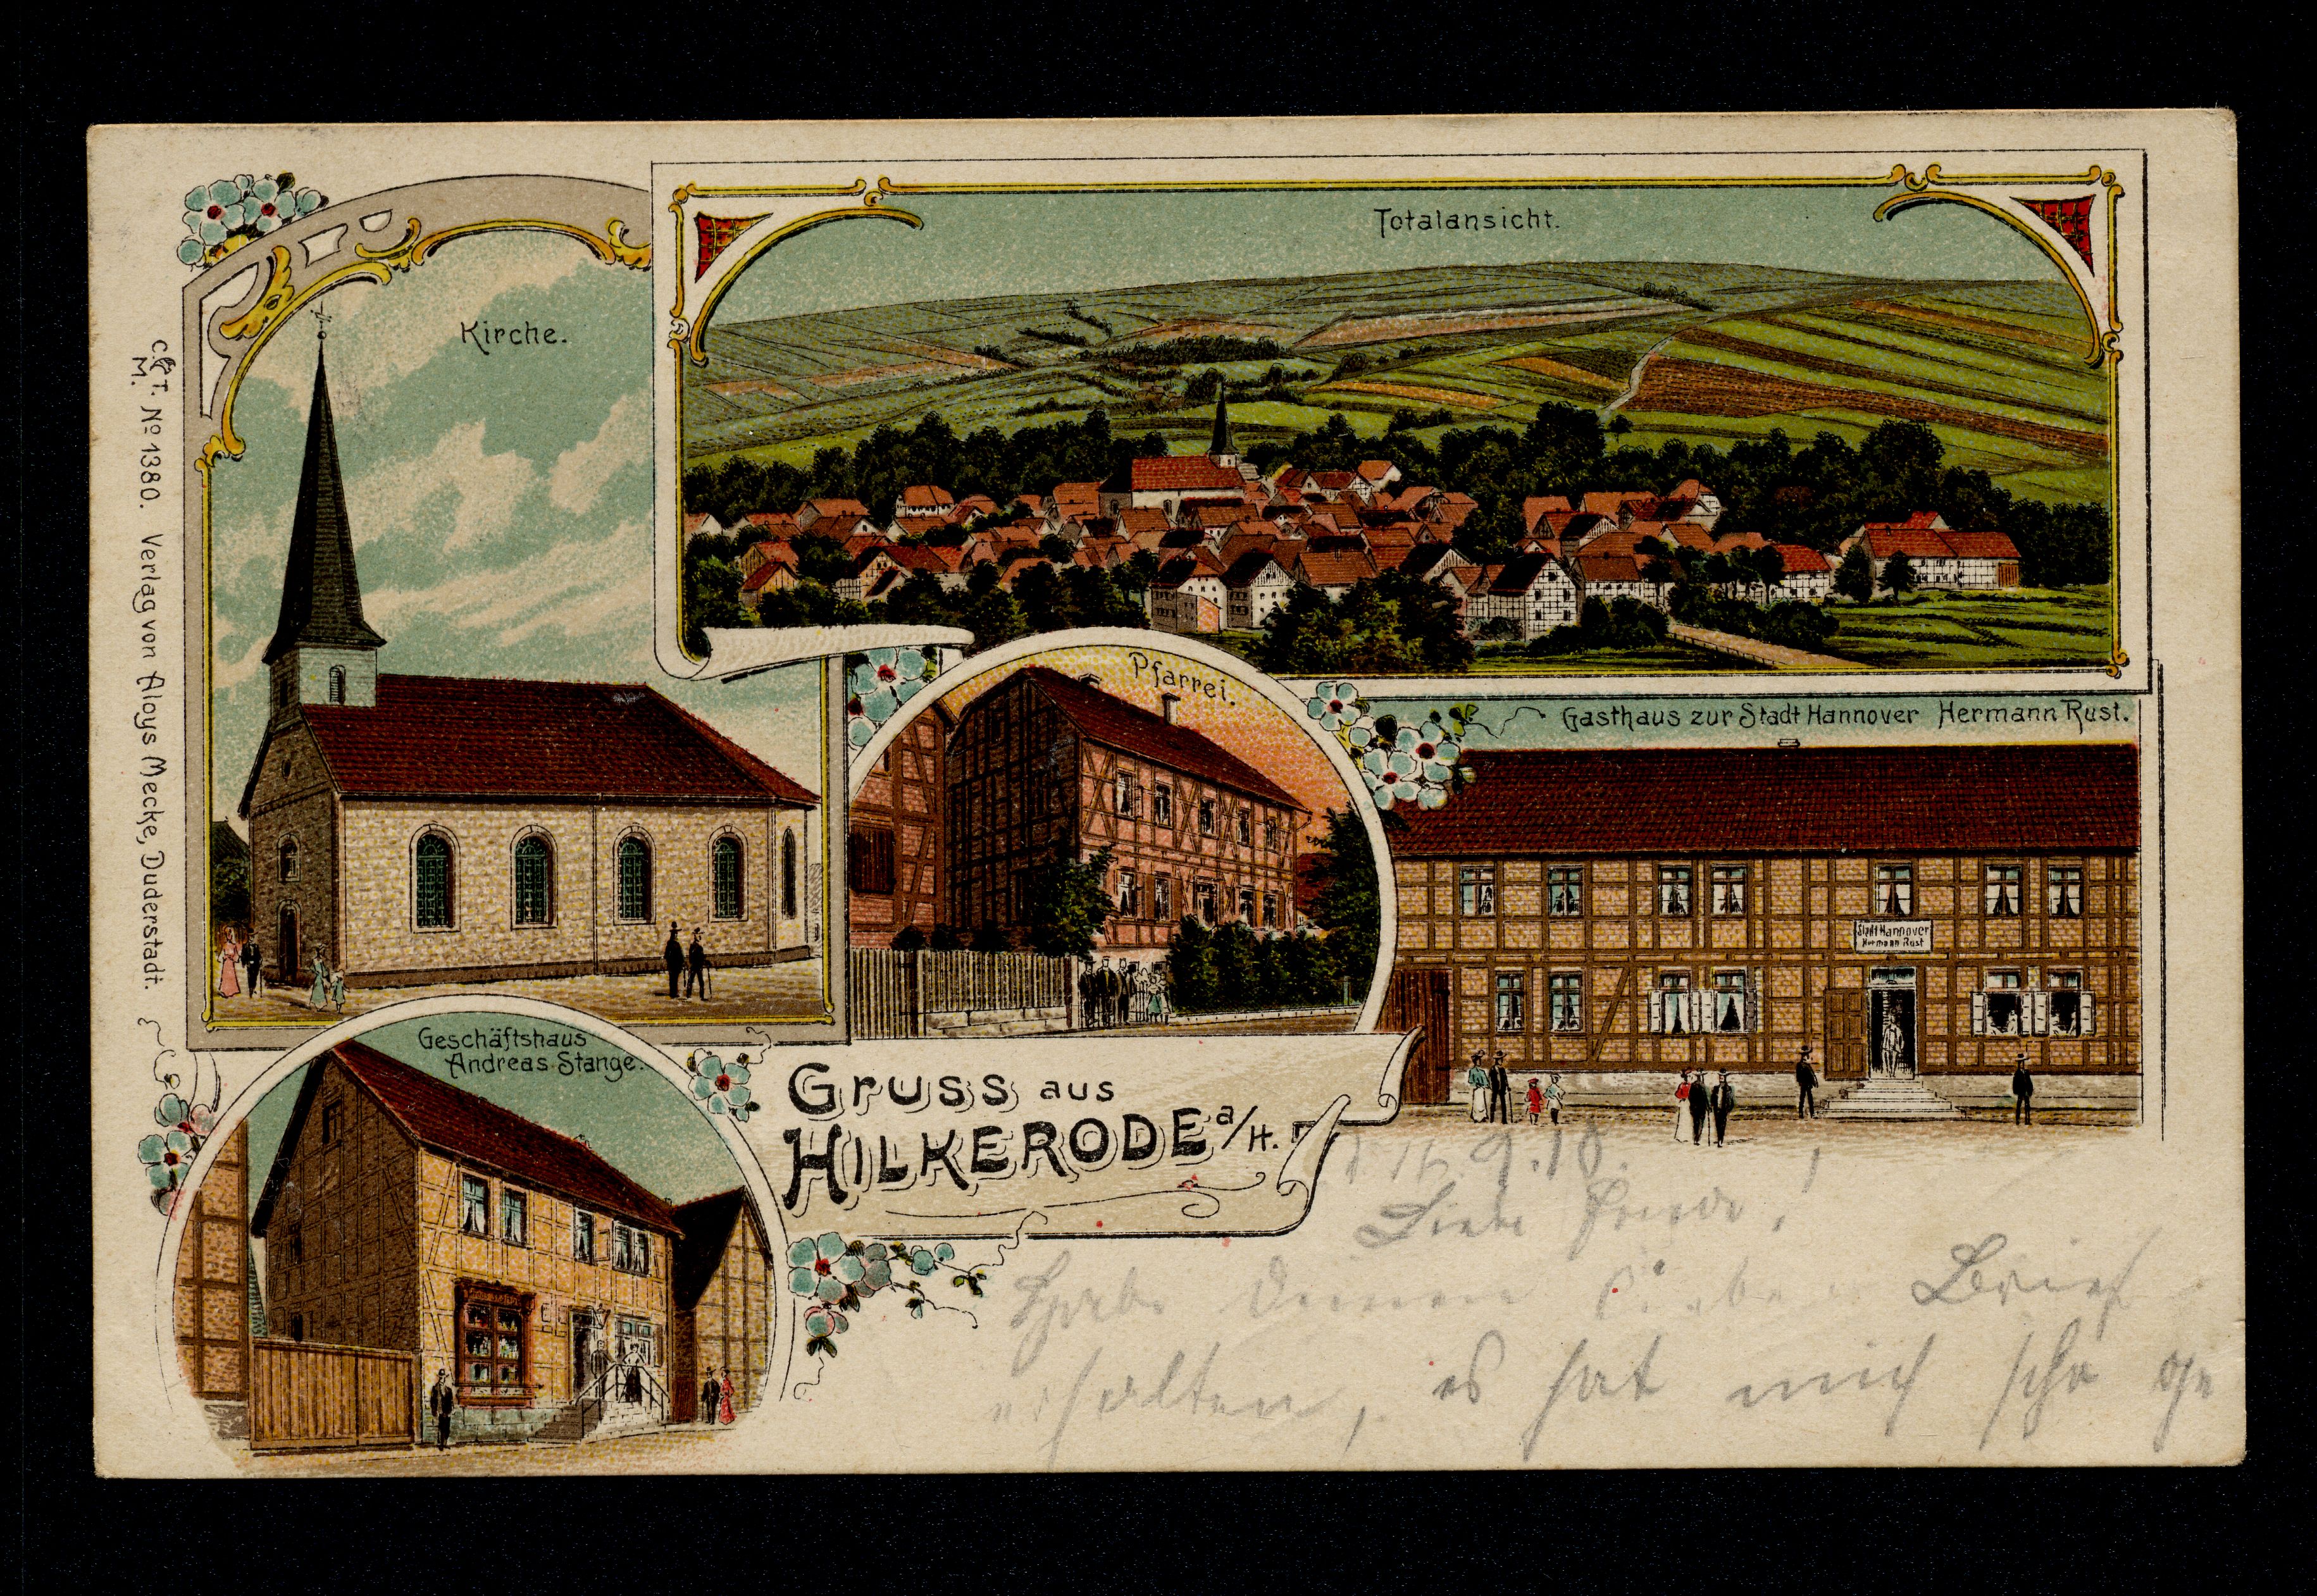 Kirche.
Totalansicht.
Pfarrei.
Gasthaus zur Stadt Hannover Hermann Rust.
Stadt Hannover
Hermann Rust
Geschäftshaus
Andreas Stange.
Gruss aus
HILKERODE a/H.
C. & T.
M.
No 1380. Verlag von Aloys Mecke, Duderstadt.
9.18.
Liebe
Habe Deinen Brief
erhalten, es hat mich